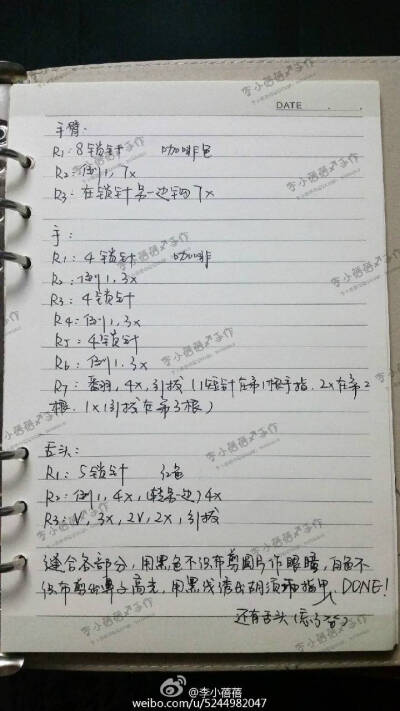 DATE . .
手臂:
R1: 8锁针 咖啡色
R2: 倒1, 7x
R3: 在锁针另一边钩7x
手:
R1: 4锁针 咖啡
R2: 倒1, 3x
R3: 4锁针
R4: 倒1, 3x
R5: 4锁针
R6: 倒1. 3x
R7: 翻面, 4x, 引拔 (1短针在第1根手指. 2x在第2
根. 1x引拔在第3根)
舌头:
R1: 5锁针 红色
R2: 倒1, 4x, (转另一边) 4x
R3: V, 3x, 2V, 2x, 引拔
缝合各部分, 用黑色不织布剪圆片作眼睛, 白色不
织布剪出鼻子高光, 用黑线绣出胡须和指甲, DONE!
还有舌头
李小蓓蓓手作
@李小蓓蓓
weibo.com/u/5244982047